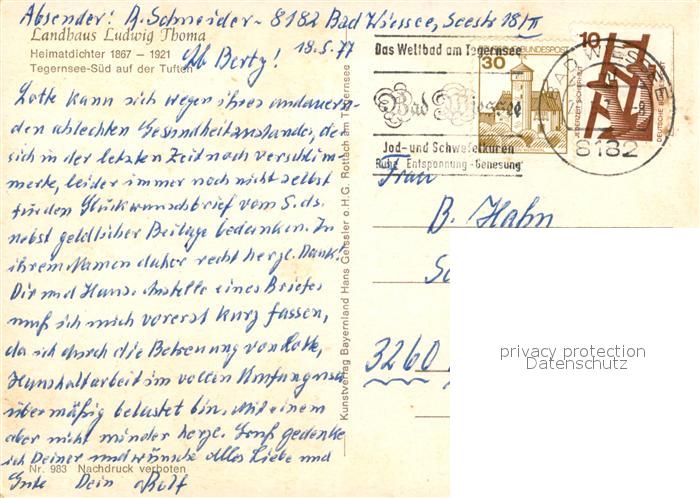 Absender: R. Schneider - 8182 Bad Wiessee, Seestr 18/II
Landhaus Ludwig Thoma
Heimatdichter 1867 – 1921
Tegernsee-Süd auf der Tuften
18.5.77
Lb Berty!
Lotte kann sich wegen ihres andauern-
den schlechten Gesundheitszustandes, der
sich in der letzten Zeit noch verschlim-
merte, leider immer noch nicht selbst
für den Glückwunschbrief vom 5. ds.
nebst geldlicher Beilage bedanken. In
ihrem Namen daher recht herzl. Dank!
Dir und Hans. Anstelle eines Briefes
muß ich mich vorerst kurz fassen,
da ich durch die Betreuung von Lotte,
Haushaltarbeit im vollen Umfang
übermäßig belastet bin. Mit einem
aber nicht minder herzl. Gruß gedenke
ich Deiner und wünsche alles Liebe und
Gute Dein Rolf
Nr. 983 Nachdruck verboten
Kunstverlag Bayernland Hans Geissler o.H.G. Rottach am Tegernsee
Das Weltbad am Tegernsee
Bad Wiessee
Jod- und Schwefelkuren
Ruhe Entspannung Genesung
30
BUNDESPOST
10
JEDERZEIT SICHERHEIT
DEUTSCHE BUNDESPOST
BAD WIESSEE
8182
Frau
B. Hahn
3260
privacy protection
Datenschutz